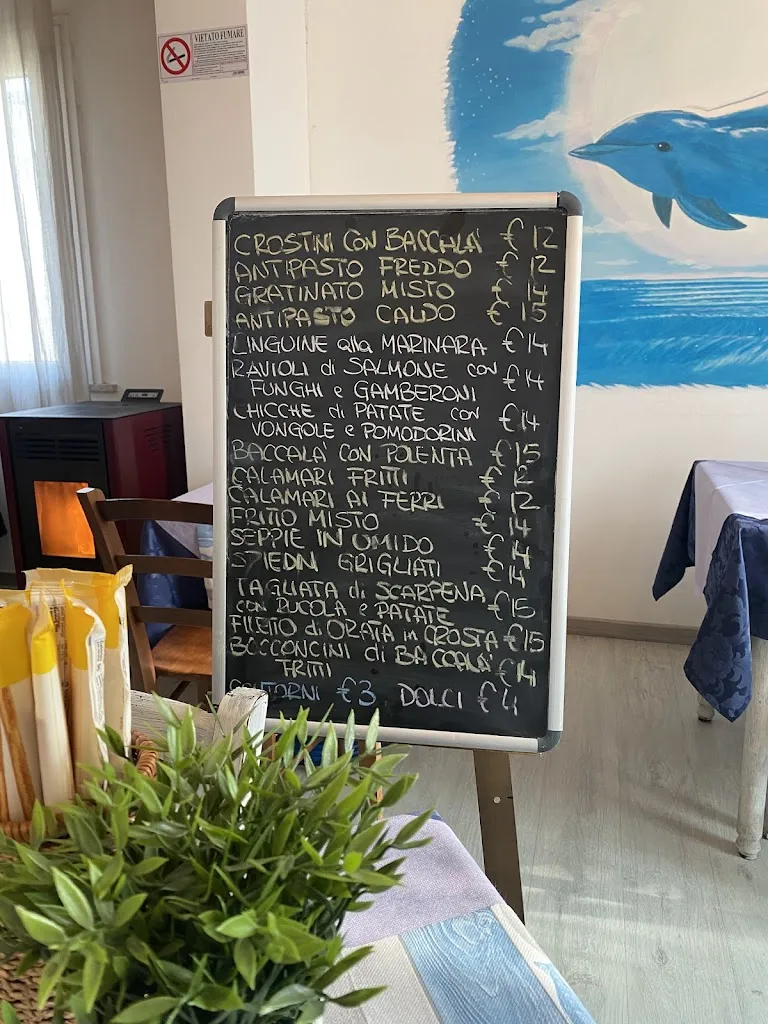 VIETATO FUMARE
CROSTINI CON BACCALA' € 12
ANTIPASTO FREDDO € 12
GRATINATO MISTO € 14
ANTIPASTO CALDO € 15
LINGUINE alla MARINARA € 14
RAVIOLI di SALMONE con € 14
FUNGHI e GAMBERONI
CHICCHE di PATATE con € 14
VONGOLE e POMODORINI
BACCALA' CON POLENTA € 15
CALAMARI FRITTI € 12
CALAMARI AI FERRI € 12
FRITTO MISTO € 14
SEPPIE IN UMIDO € 14
SPIEDINI GRIGLIATI € 14
TAGLIATA di SCARPENA € 15
CON RUCOLA e PATATE
FILETTO di ORATA in CROSTA € 15
BOCCONCINI di BACCALA' € 14
FRITTI
CONTORNI € 3 DOLCI € 4